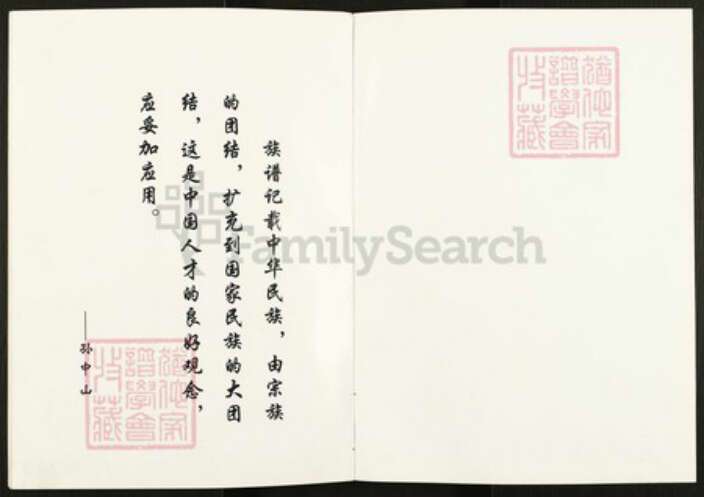 族谱记载中华民族，由宗族
的团结，扩充到国家民族的大团
结，这是中国人才的良好观念，
应妥加应用。
——孙中山
FamilySearch